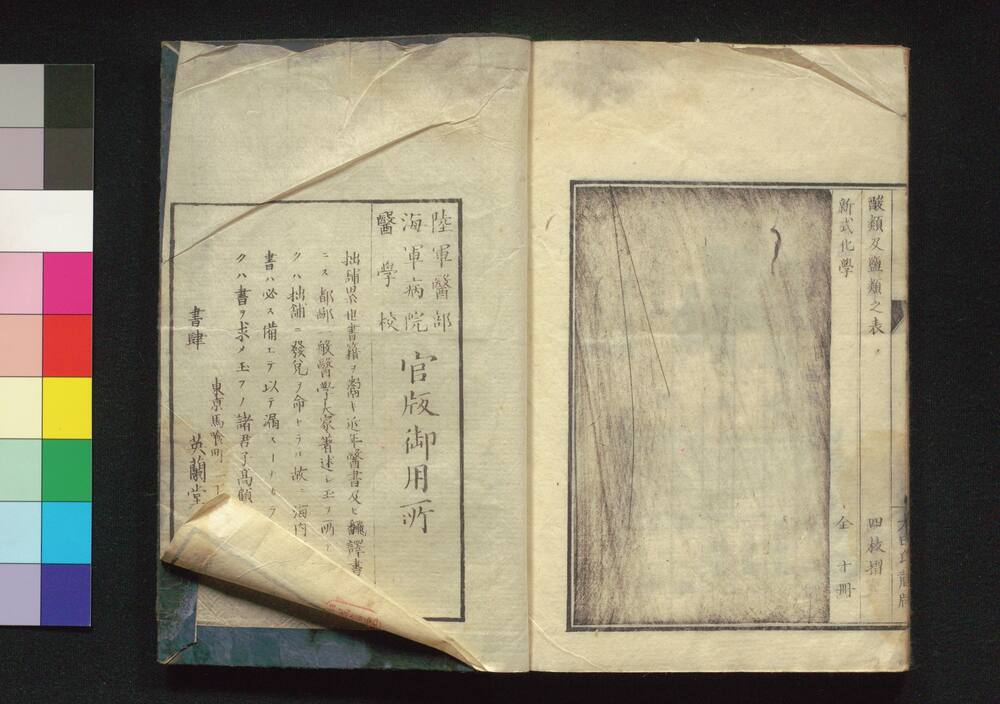 酸類及鹽類之表 四枚摺
新式化学 全十冊
陸軍醫部
海軍病院
醫学校
官版御用所
拙舖累世書籍ヲ鬻キ近年醫書及ヒ飜譯書
ニス都鄙一般醫學大家著述シ玉フ所
クハ拙舖ニ發兌ヲ命セラル故ニ海内
書ハ必ス備エテ以テ漏スナ
クハ書ヲ求メ玉フノ諸君子高顧
東京馬喰町
書肆 英蘭堂